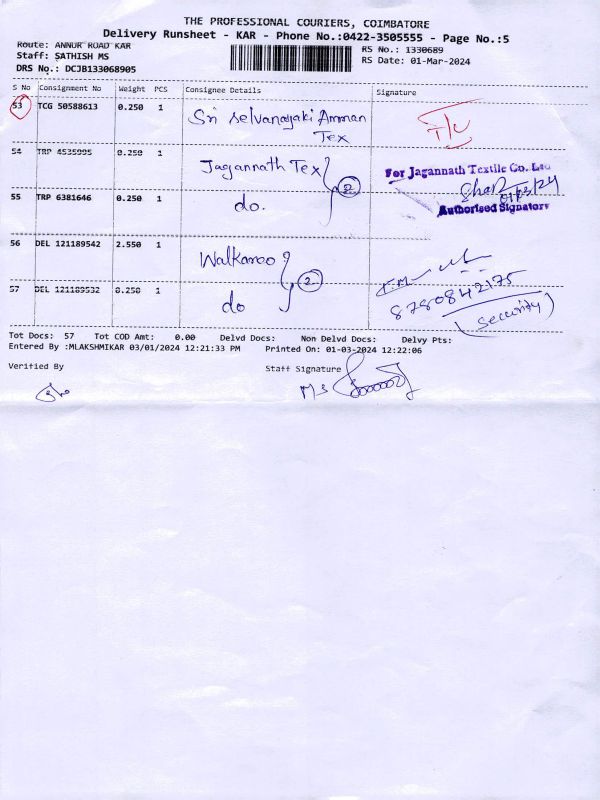 THE PROFESSIONAL COURIERS, COIMBATORE
Delivery Runsheet - KAR - Phone No.:0422-3505555 - Page No.:5
Route: ANNUR ROAD KAR
Staff: SATHISH MS
DRS No.: DCJB133068905
RS No.: 1330689
RS Date: 01-Mar-2024
S No Consignment No Weight PCS Consignee Details Signature
53 TCG 50588613 0.250 1 Sri Selvanayaki Amman Tex
54 TRP 4535995 0.250 1 Jagannath Tex
For Jagannath Textile Co. Ltd
01/03/24
Authorised Signatory
55 TRP 6381646 0.250 1 do.
2
56 DEL 121189542 2.550 1 Walkaroo
57 DEL 121189532 0.250 1 do
2
8780842175
(Security)
Tot Docs: 57 Tot COD Amt: 0.00 Delvd Docs: Non Delvd Docs: Delvy Pts:
Entered By :MLAKSHMIKAR 03/01/2024 12:21:33 PM Printed On: 01-03-2024 12:22:06
Verified By Staff Signature
MS